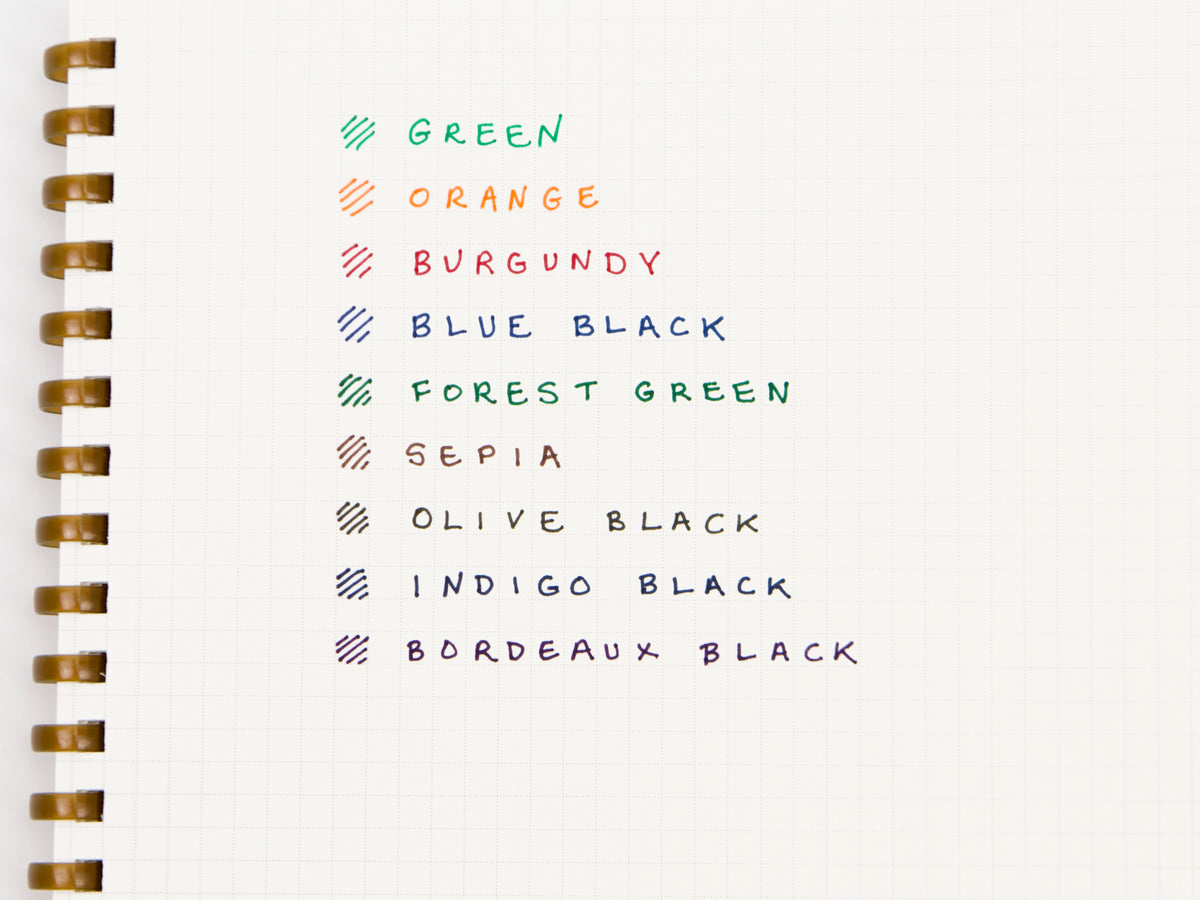 GREEN
ORANGE
BURGUNDY
BLUE BLACK
FOREST GREEN
SEPIA
OLIVE BLACK
INDIGO BLACK
BORDEAUX BLACK